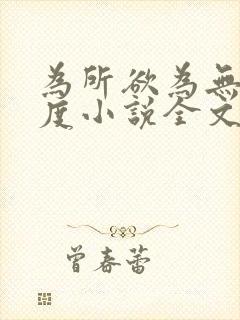 為所欲為無
度小說全文
曾春蕾